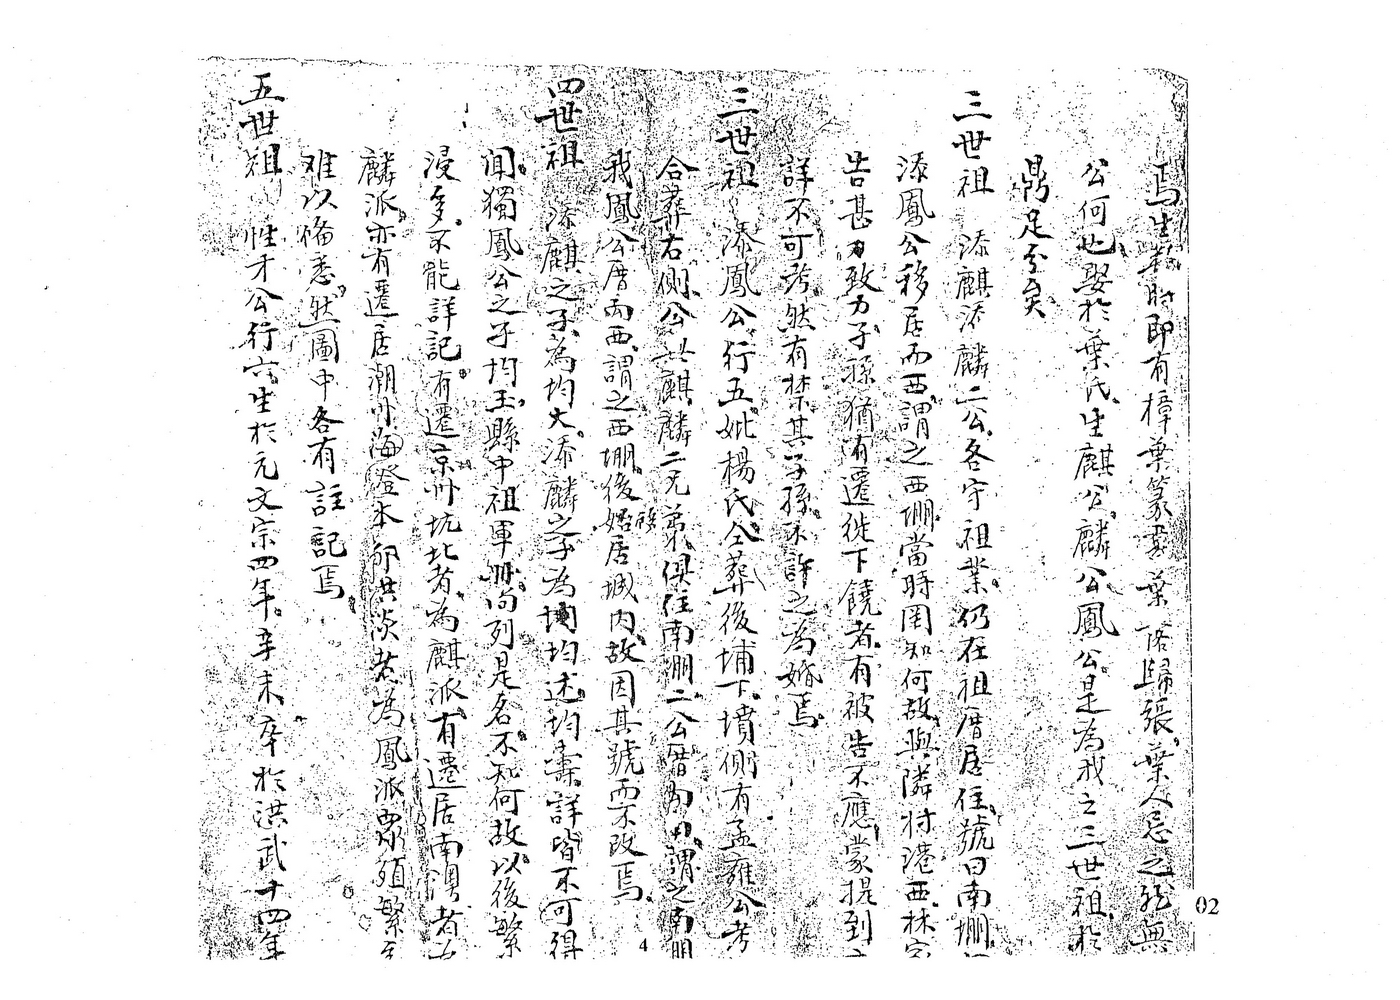 焉生　時即有樟葉篆書葉俗歸張葉人忌之　無
公何也娶於葉氏生麒公麟公鳳公是為我之三世祖於
鼎足分矣
三世祖　添麒添麟二公各守祖業仍在祖厝居住號曰南堋
添鳳公移居而西謂之西堋當時罔知何故與隣村港西林
告甚力致力子孫猶有遷徙下饒者有被告不應蒙提到
詳不可考然有禁其子孫不許之為婚焉
三世祖　添鳳公行五妣楊氏仝葬後埔下墳側有孟雍公考
合葬右側公共麒麟二兄弟俱住南堋二公厝　謂之南堋
我鳳公厝而西謂之西堋後移居城內故因其號而不改焉
四世祖　添麒之子為均大添麟之子為均均述均壽詳皆不可得
聞獨鳳公之子均玉縣中祖軍冊尚列是名不知何故以後繁
浸多不能詳記有遷京州坑北者為麒派有遷居南澳者
麟派亦有遷居潮州海澄本邱洪淡者為鳳派眾殖繁
难以俻悉然圖中各有註記焉
五世祖　性才公行六生於元文宗四年辛未卒於洪武十四年
4
02